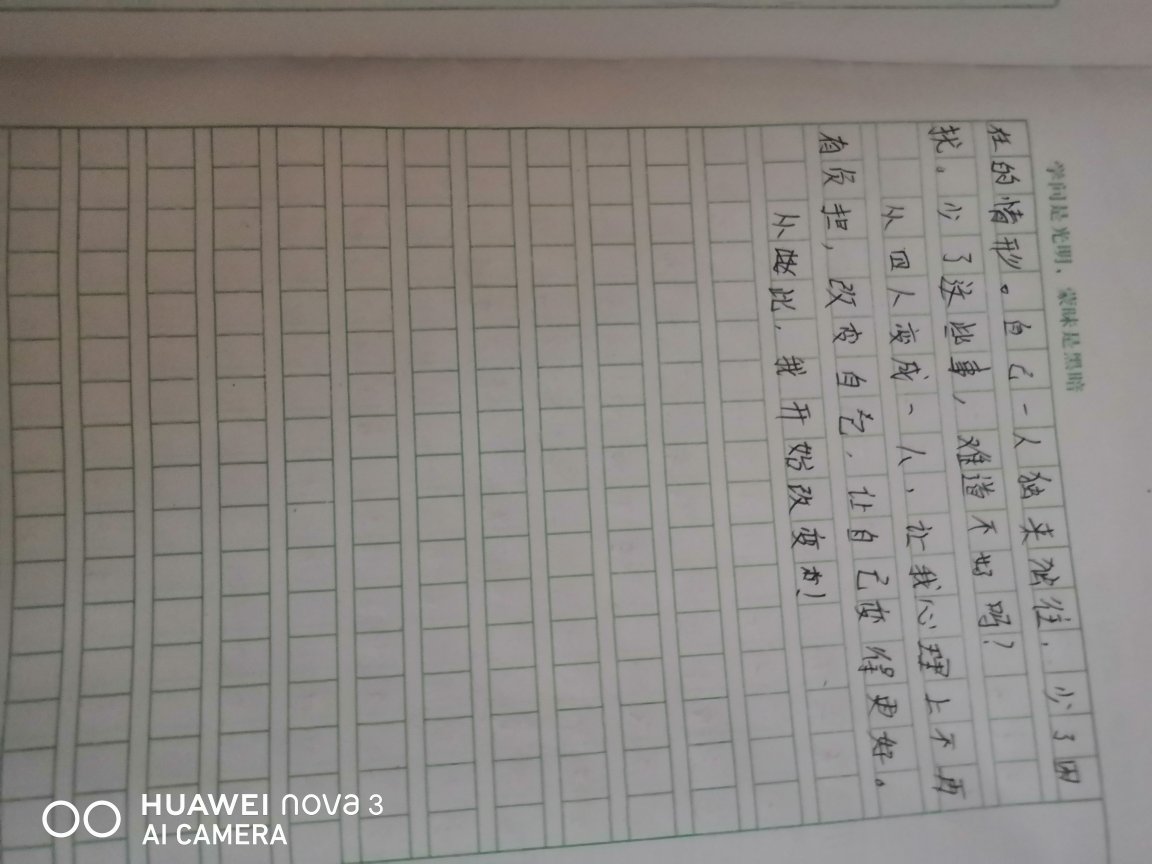 学问是光明，蒙昧是黑暗
在的情形。自己一人独来独往，少了困
扰。少了这些事，难道不好吗？
从四人变成一人，让我心理上不再
有负担，改变自己，让自己变得更好。
从做此，我开始改变了！
HUAWEI nova 3
AI CAMERA